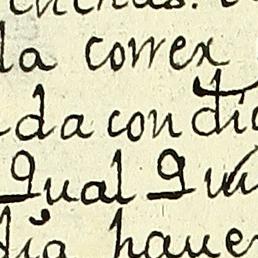 la correx
da condic
Qual Qui
dia haue